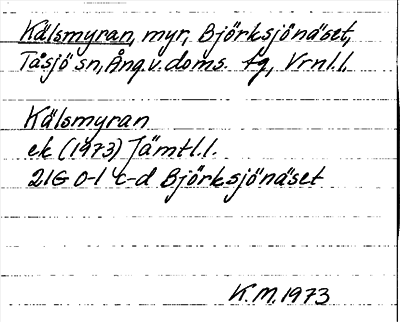 Kälsmyran, myr, Björksjönäset,
Tåsjö sn, Ång. v. doms. tg, Vrnl.l.
Kälsmyran
ek (1973) Jämtl.l.
21G 0-1 c-d Björksjönäset
K.M. 1973